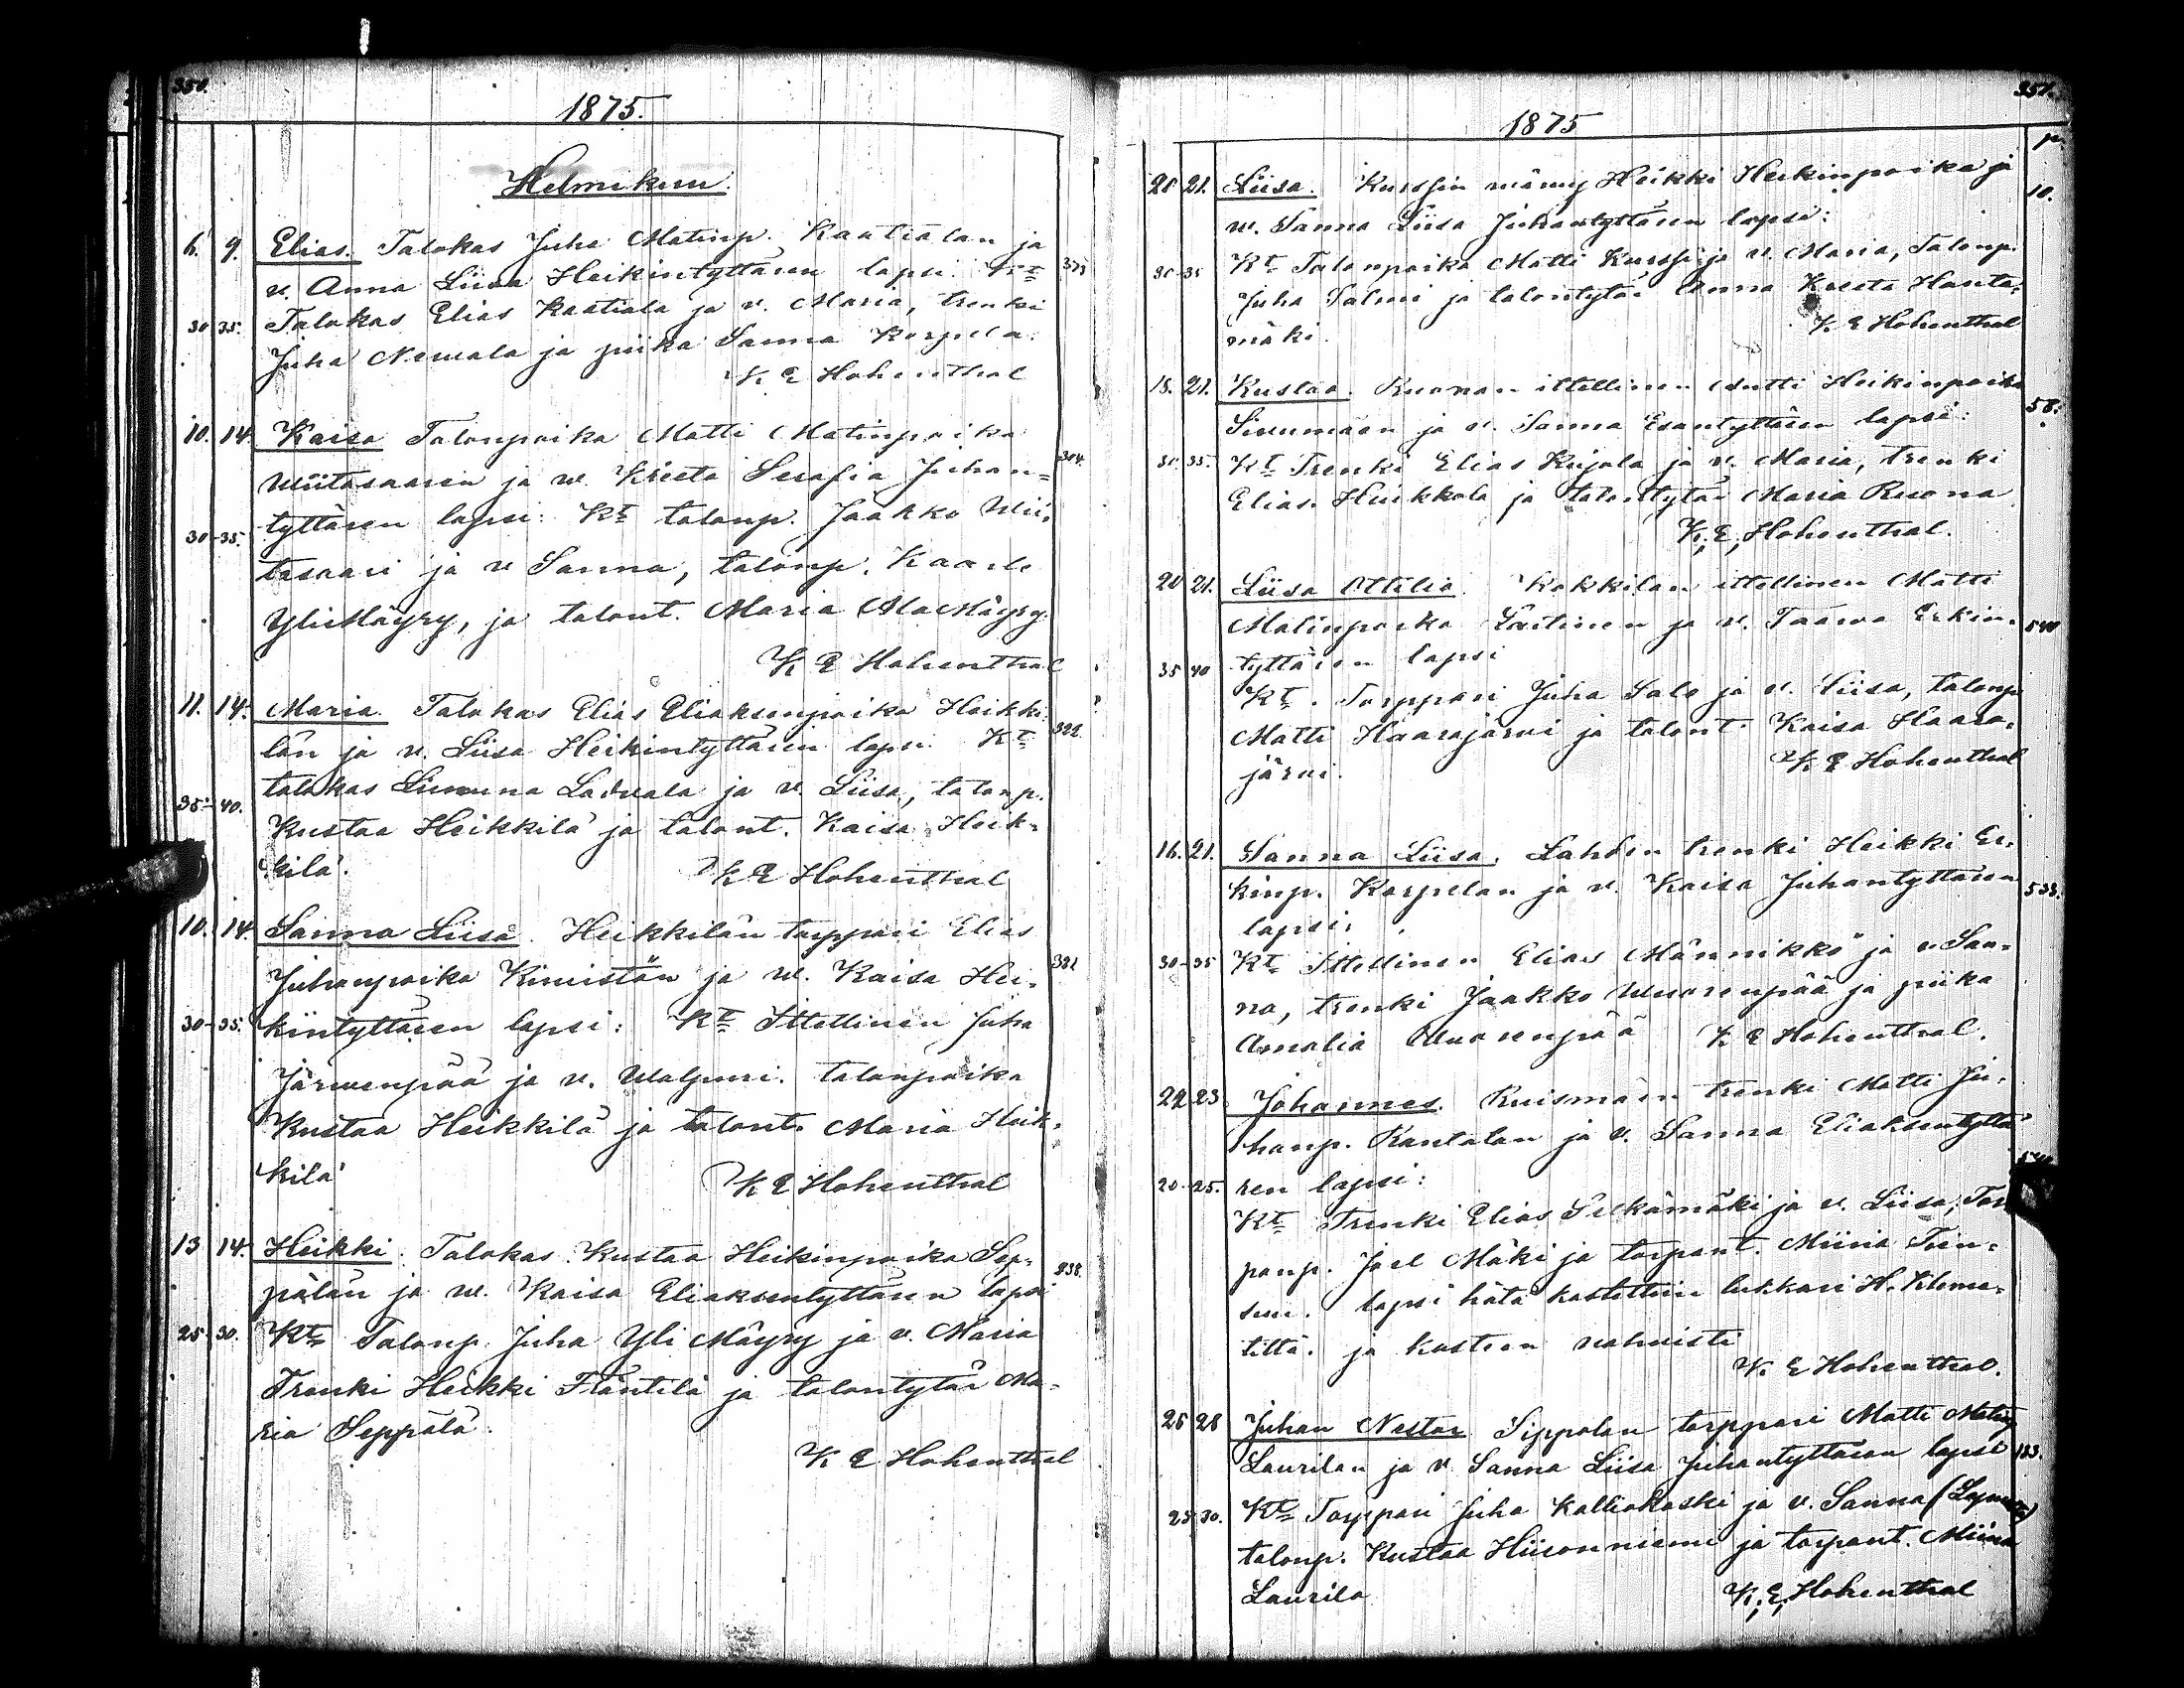 350.
1875.
Helmikuu.
6. 9. Elias. Talokas Juha Matinp. Kaatialan ja
v. Anna Liisa Heikintyttären lapsi. Kt
30 35. Talokas Elias Kaatiala ja v. Maria, trenki
Juha Newala ja piika Sanna Korpela.
K E Hohenthal
10. 14. Kaisa Talonpoika Matti Matinpoika 304.
Wiitasaaren ja w. Kreeta Serafia Juhan-
30-35. tyttären lapsi: Kt talonp. Jaakko Wii-
tasaari ja v Sanna, talonp. Kaarle
YliMäyry, ja talont. Maria AlaMäyry.
K E Hohenthal
11. 14. Maria. Talokas Elias Eliaksenpoika Heikki- 322.
län ja v. Liisa Heikintyttären lapsi. Kt
35-40. talokas Ladwala ja v. Liisa, talonp.
Kustaa Heikkilä ja talont. Kaisa Heik-
kilä.
K E Hohenthal
10. 14. Sanna Liisa. Heikkilän torppari Elias
Juhanpoika Kiwistön ja w. Kaisa Hei-
30-35. kintyttären lapsi: Kt Ittellinen Juha
Järwenpää ja v. Walpuri. talonpoika
Kustaa Heikkilä ja talont. Maria Heik-
kilä
K E Hohenthal
13 14. Heikki. Talokas Kustaa Heikinpoika Sep-
pälän ja w. Kaisa Eliaksentyttären lapsi 238.
25-30. Kt Talonp. Juha Yli Mäyry ja v. Maria
Trenki Heikki Fräntilä ja talontytär Ma-
ria Seppälä.
K E Hohenthal
351.
1875
p.
20 21. Liisa. Kurssin mänty Heikki Heikinpoika ja 10.
w. Sanna Liisa Juhantyttären lapsi:
30-35 Kt Talonpoika Matti Kurssi ja v. Maria, Talonp.
Juha Salmi ja talontytär Anna Kreeta Hanta-
mäki.
K. E Hohenthal
18. 21. Kustaa. Ruonan ittellinen Antti Heikinpoika 58.
Siwumäen ja v. Sanna Esantyttären lapsi:
30. 35. Kt Trenki Elias Kujala ja v. Maria, trenki
Elias Heikkola ja talontytär Maria Ruona
K. E. Hohenthal.
20 21. Liisa Ottilia. Kokkilan ittellinen Matti
Matinpoika Laitinen ja v. Taawa Erkin-
35 40 tyttären lapsi
Kt. Torppari Juha Salo ja v. Liisa, talonp
Matti Haarajärwi ja talont. Kaisa Haara-
järwi.
K E Hohenthal
16. 21. Sanna Liisa. Lahden trenki Heikki Er-
kinp. Korpelan ja v. Kaisa Juhantyttären
lapsi:
30-35 Kt Ittellinen Elias Männikkö ja v. San-
na, trenki Jaakko Wuorenpää ja piika
Amalia Wuorenpää K E Hohenthal.
22 23 Johannes. Ruismäen trenki Matti Ju-
hanp. Rantalan ja v. Sanna Eliaksentyttä-
20-25. ren lapsi:
Kt Trenki Elias Selkämäki ja v. Liisa, Tor
panp. Joel Mäki ja torpant. Miina
lapsi hätä kastettiin lukkari H.
ja kasteen wahwisti
K. E Hohenthal.
25 28 Juhan Nestor Sippolan torppari Matti Matinp
Laurilan ja v Sanna Liisa Juhantyttären lapsi 183.
25 30. Kt Torppari Juha Kalliokoski ja v. Sanna
talonp. Kustaa Hiironniemi ja torpant. Miina
Laurila
K. E. Hohenthal